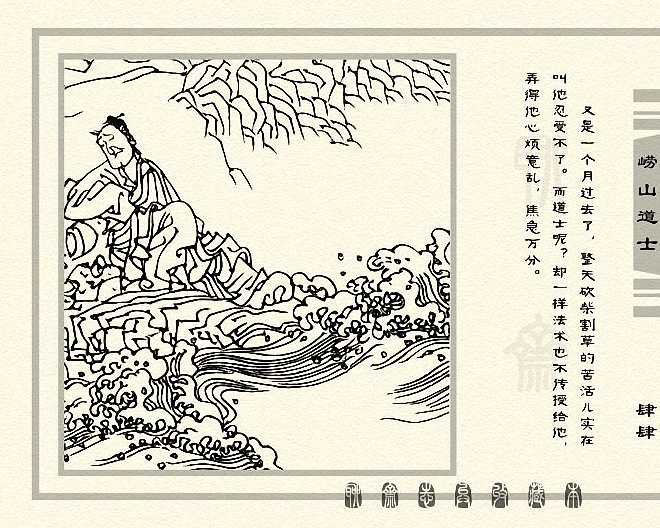 又是一个月过去了，整天砍柴割草的苦活儿实在
叫他忍受不了。而道士呢？却一样法术也不传授给他，
弄得他心烦意乱，焦急万分。
崂山道士
肆肆